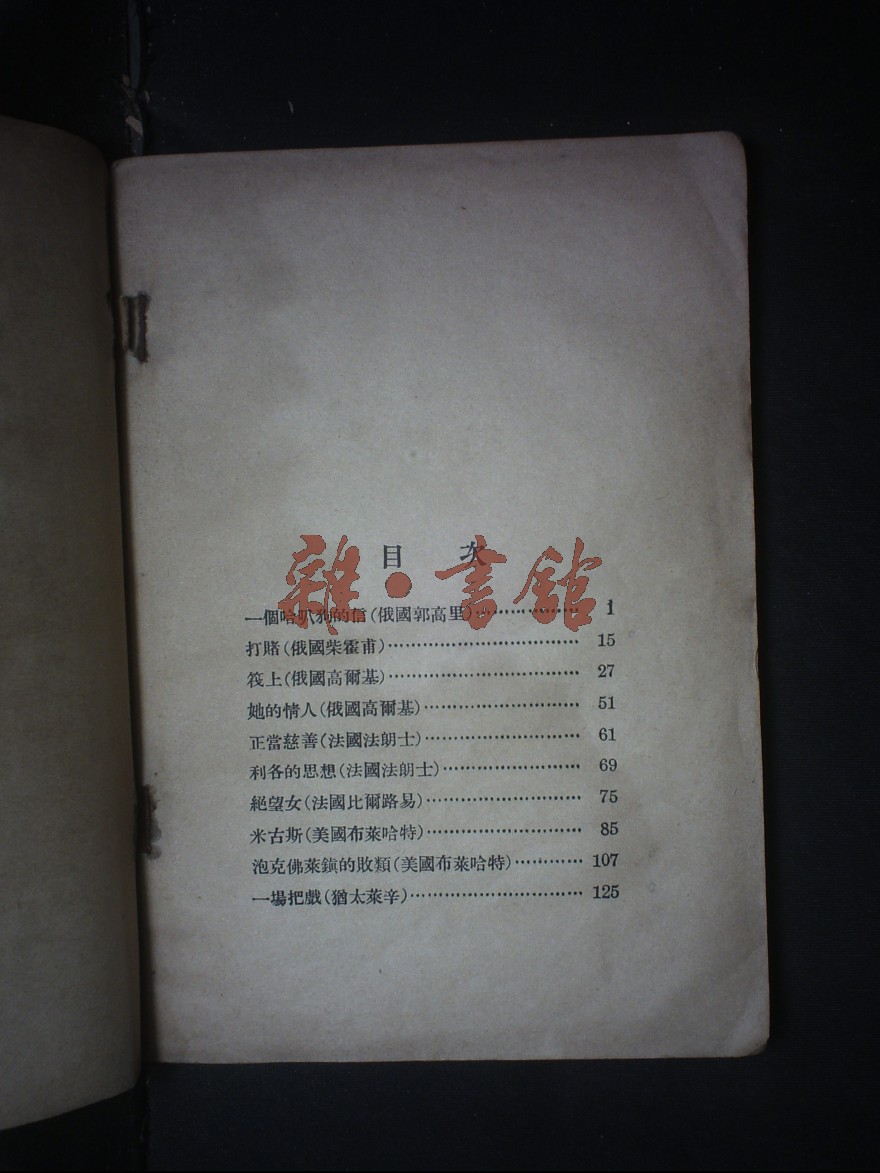 目 次
雜·書館
一個哈叭狗的信(俄國郭高里)………………1
打賭(俄國柴霍甫)………………15
筏上(俄國高爾基)………………27
她的情人(俄國高爾基)………………51
正當慈善(法國法朗士)………………61
利各的思想(法國法朗士)………………69
絕望女(法國比爾路易)………………75
米古斯(美國布萊哈特)………………85
泡克佛萊鎮的敗類(美國布萊哈特)…………107
一場把戲(猶太萊辛)………………125